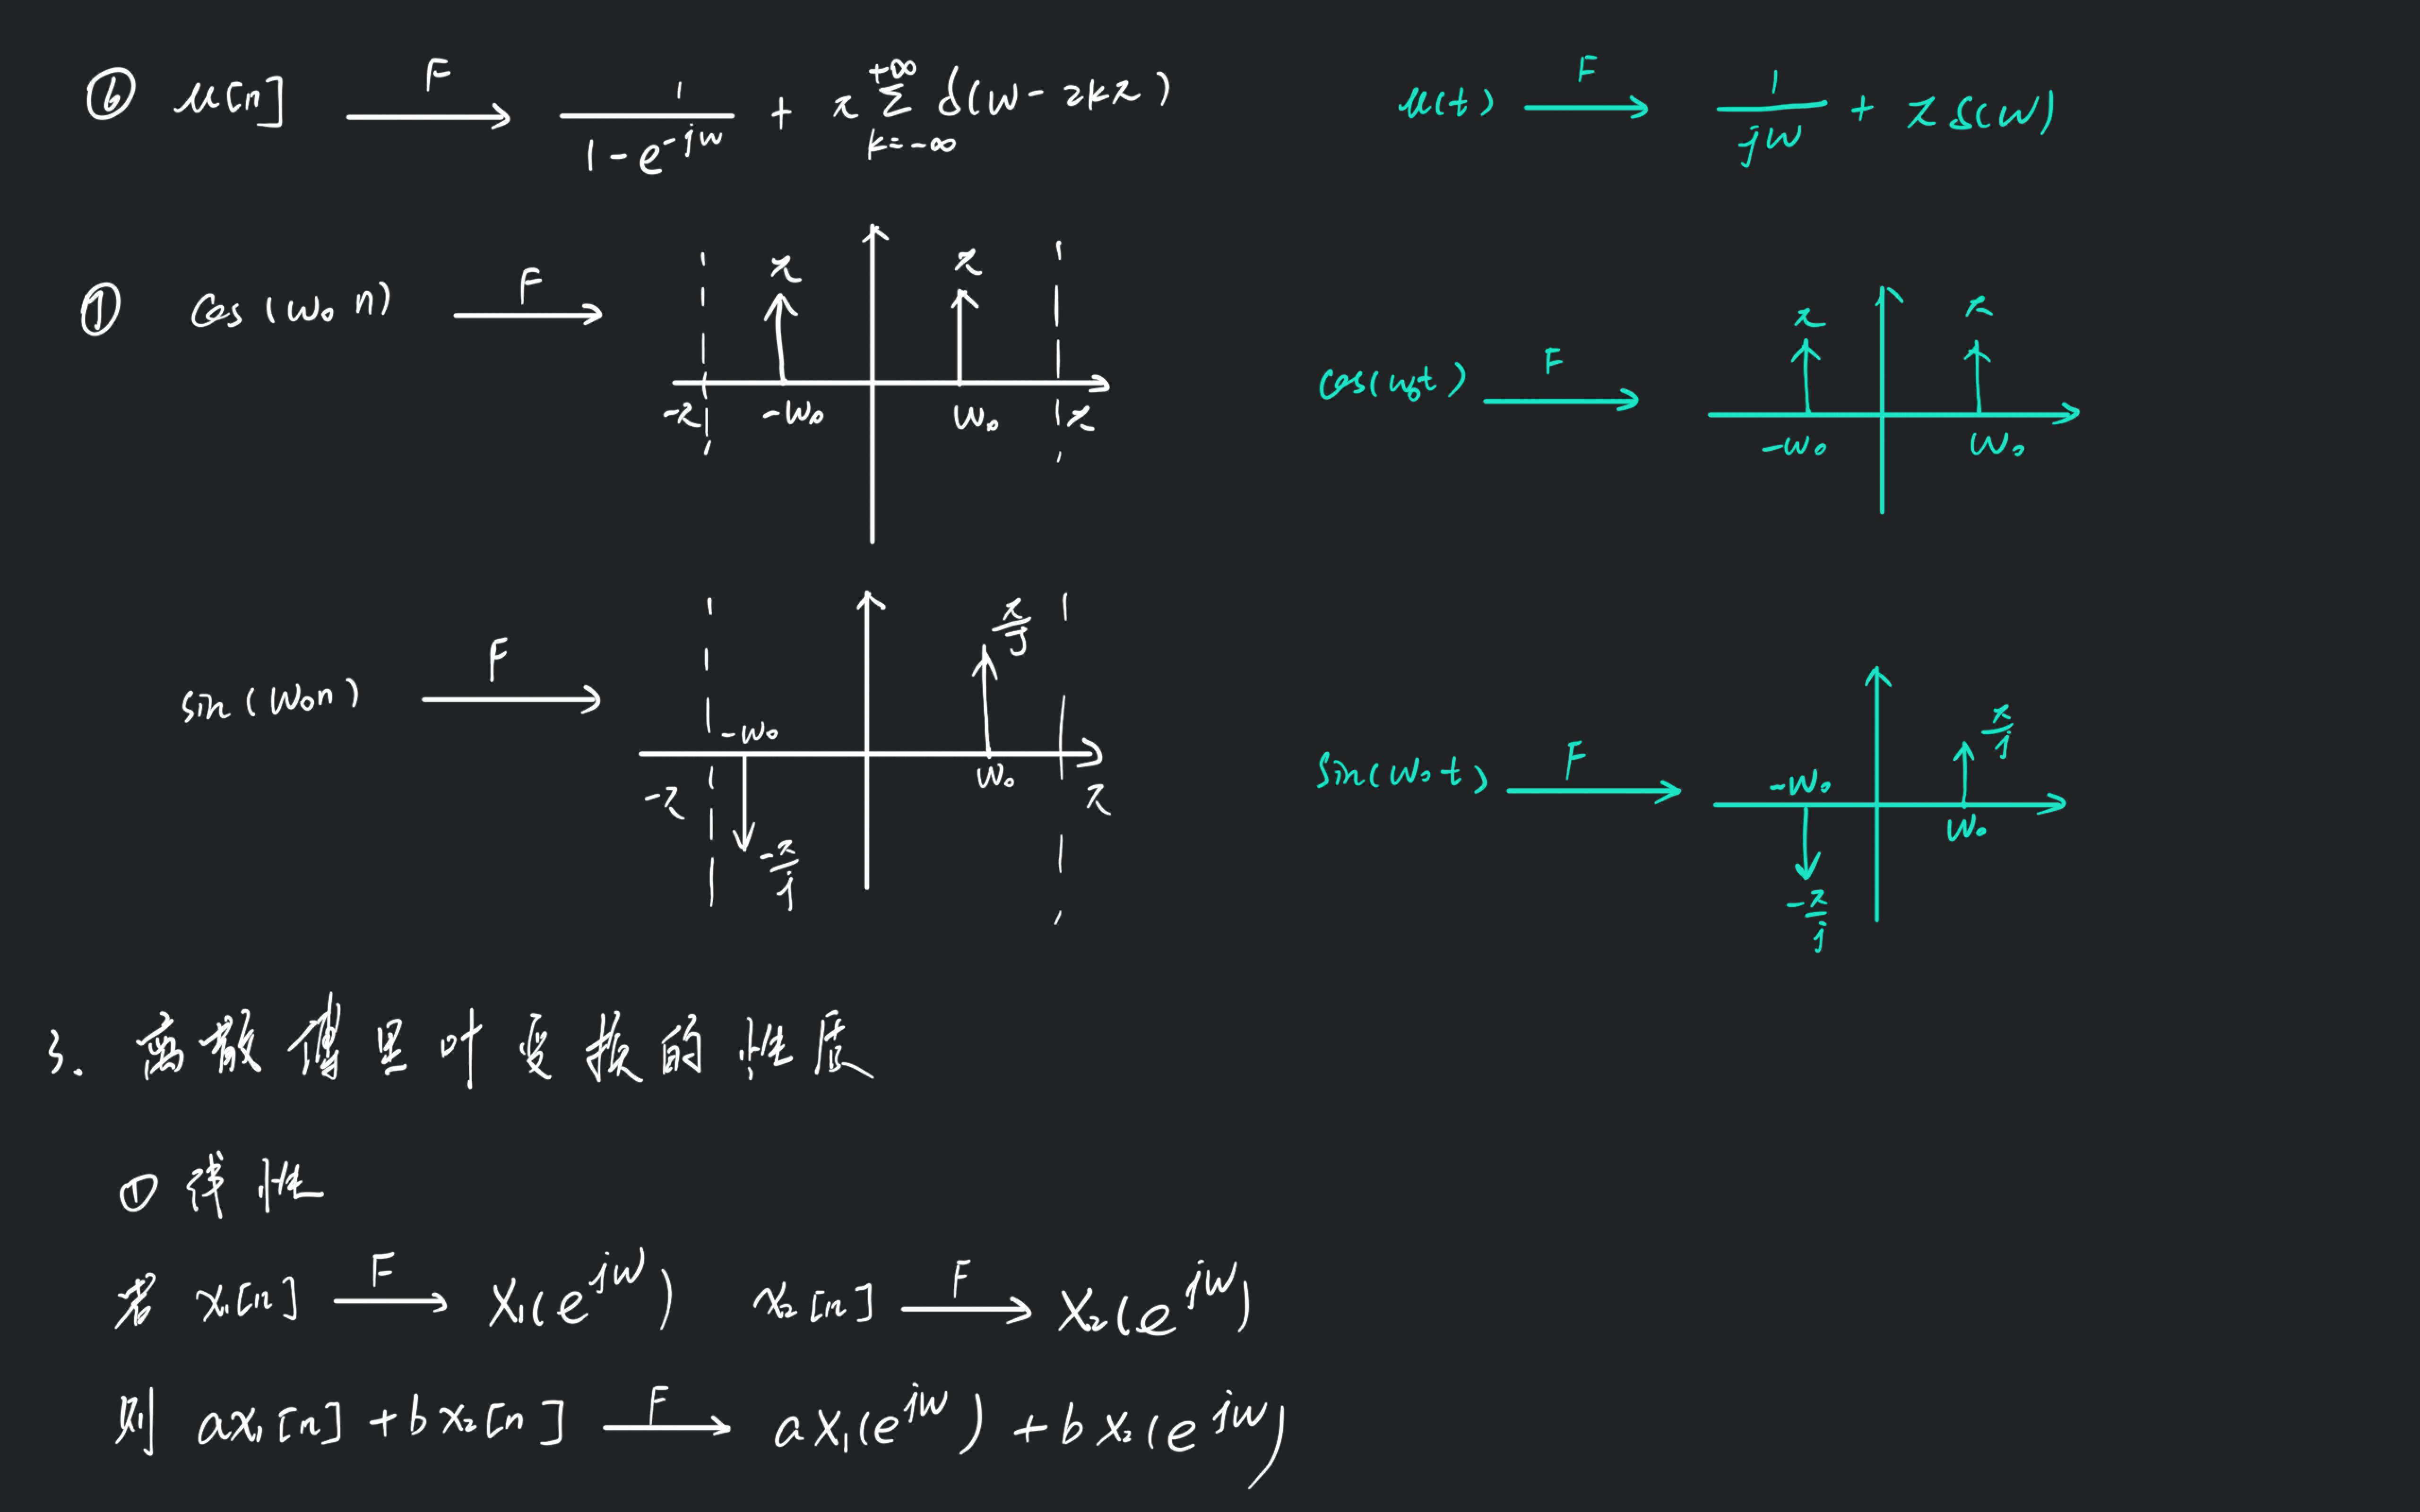 ⑥ u[n] F→ 1/(1-e^{-jω}) + π Σ_{k=-∞}^{+∞} δ(ω-2kπ)
u(t) F→ 1/(jω) + πδ(ω)
⑦ cos(ω₀n) F→
π π
-π -ω₀ ω₀ π
cos(ω₀t) F→
π π
-ω₀ ω₀
sin(ω₀n) F→
π/j
-ω₀ ω₀
-π π
-π/j
sin(ω₀t) F→
π/j
-ω₀ ω₀
-π/j
3. 离散傅里叶变换的性质
① 线性
若 x₁[n] F→ X₁(e^{jω}) x₂[n] F→ X₂(e^{jω})
则 ax₁[n]+bx₂[n] F→ aX₁(e^{jω})+bX₂(e^{jω})